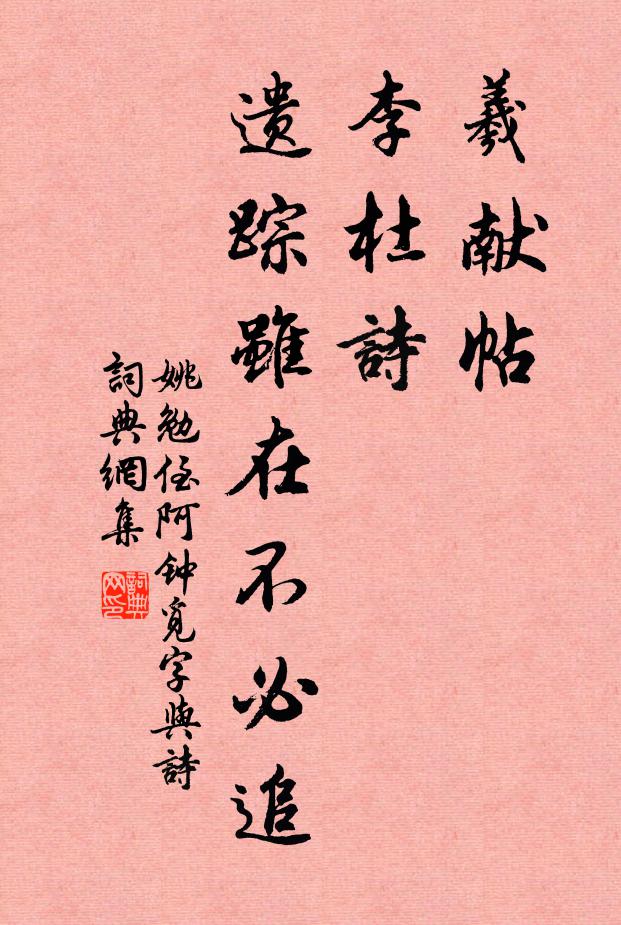 羲献帖
李杜詩
遗踪雖在不必追
姚勉侄阿钟覓字與詩
詞典網集
詞典网印